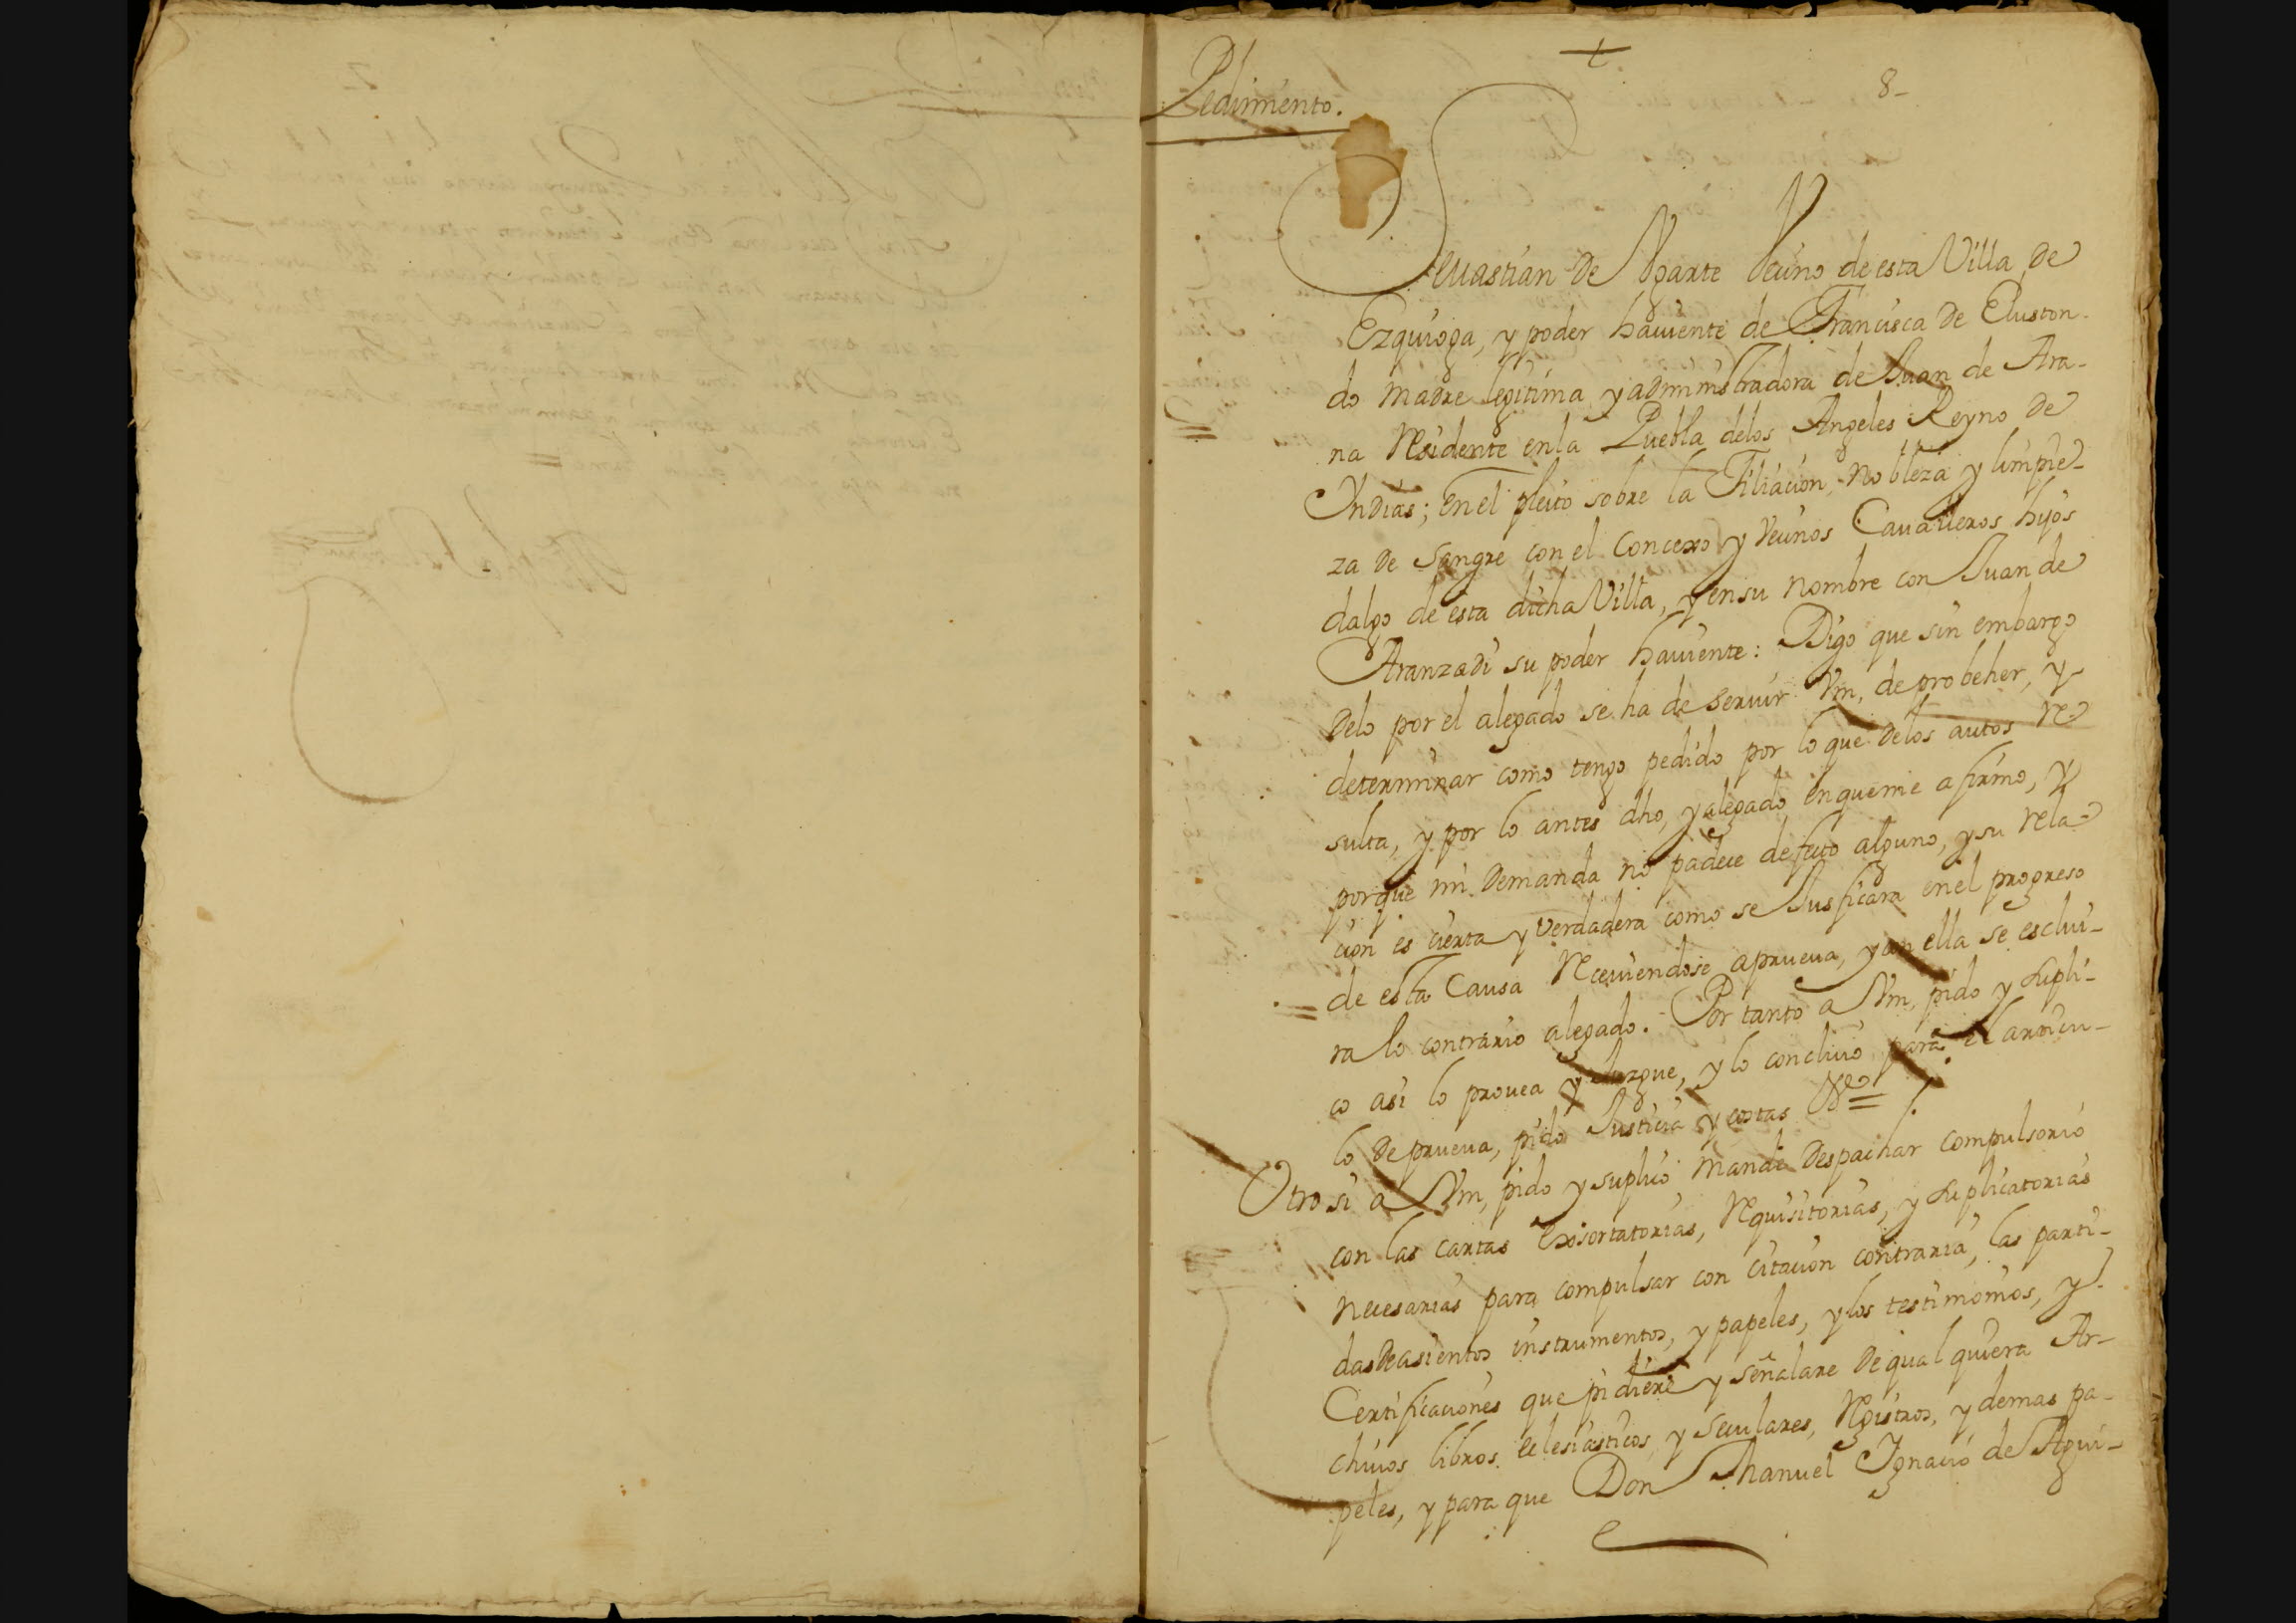 Pedimiento.
8-
Sevastian de Vgarte Vecino de esta Villa de
Ezquioga, y poder haviente de Francisca de Eluston-
do madre legitima y administradora de Juan de Ara-
na Residente en la Puebla delos Angeles Reyno de
Yndias; En el pleito sobre la Filiacion, Nobleza y limpie-
za de sangre con el Concexo y Vecinos Cavalleros hijos
dalgo de esta dicha Villa, y en su nombre con Juan de
Aranzadi su poder haviente: Digo que sin embargo
Delo por el alegado se ha de servir Vm, de probeher, y
determinar como tengo pedido por lo que delos autos Re
sulta, y por lo antes dho, y alegado en que me afirmo, y
porque mi Demanda no padece defecto alguno, y su rela-
cion es cierta y verdadera como se Jusficara en el progreso
de esta Causa Receviendose aprueva, y con ella se esclui-
ra lo contrario alegado. Por tanto a Vm, pido y supli-
co asi lo provea y Juzgue, y lo concluio para el articu-
lo de prueva, pido Justicia y costas &a =
Otro si a Vm, pido y suplico mande Despachar compulsorio
con las cartas Exsortatorias, Requisitorias, y suplicatorias
necesarias para compulsar con citacion contraria, las parti-
das de asientos instrumentos, y papeles, y los testimonios, y
Certificaciones que pidiere y señalare de qual quiera Ar-
chivos libros eclesiasticos y seculares, Registros, y demas pa-
peles, y para que Don Manuel Ignacio de Agui-